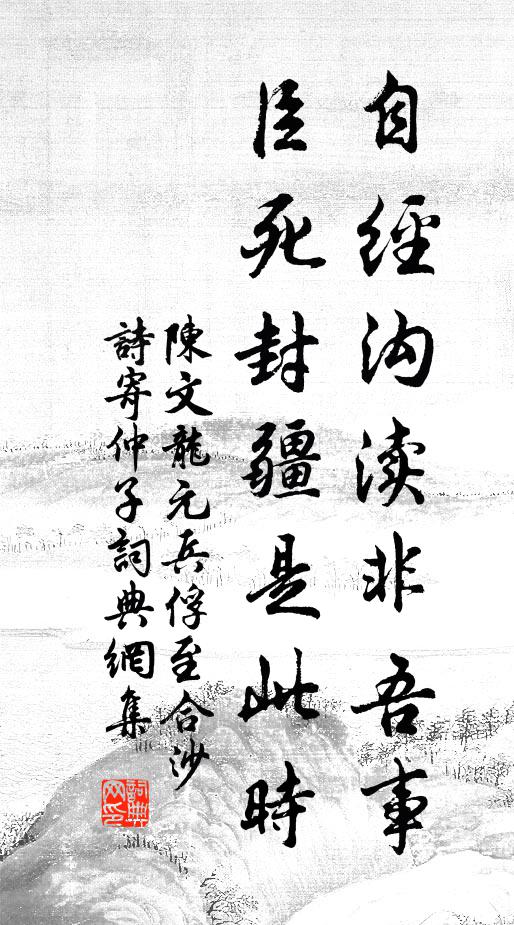 自經沟渎非吾事
臣死封疆是此時
陳文龍元兵俘至合沙
詩寄仲子詞典網集
詞典网印